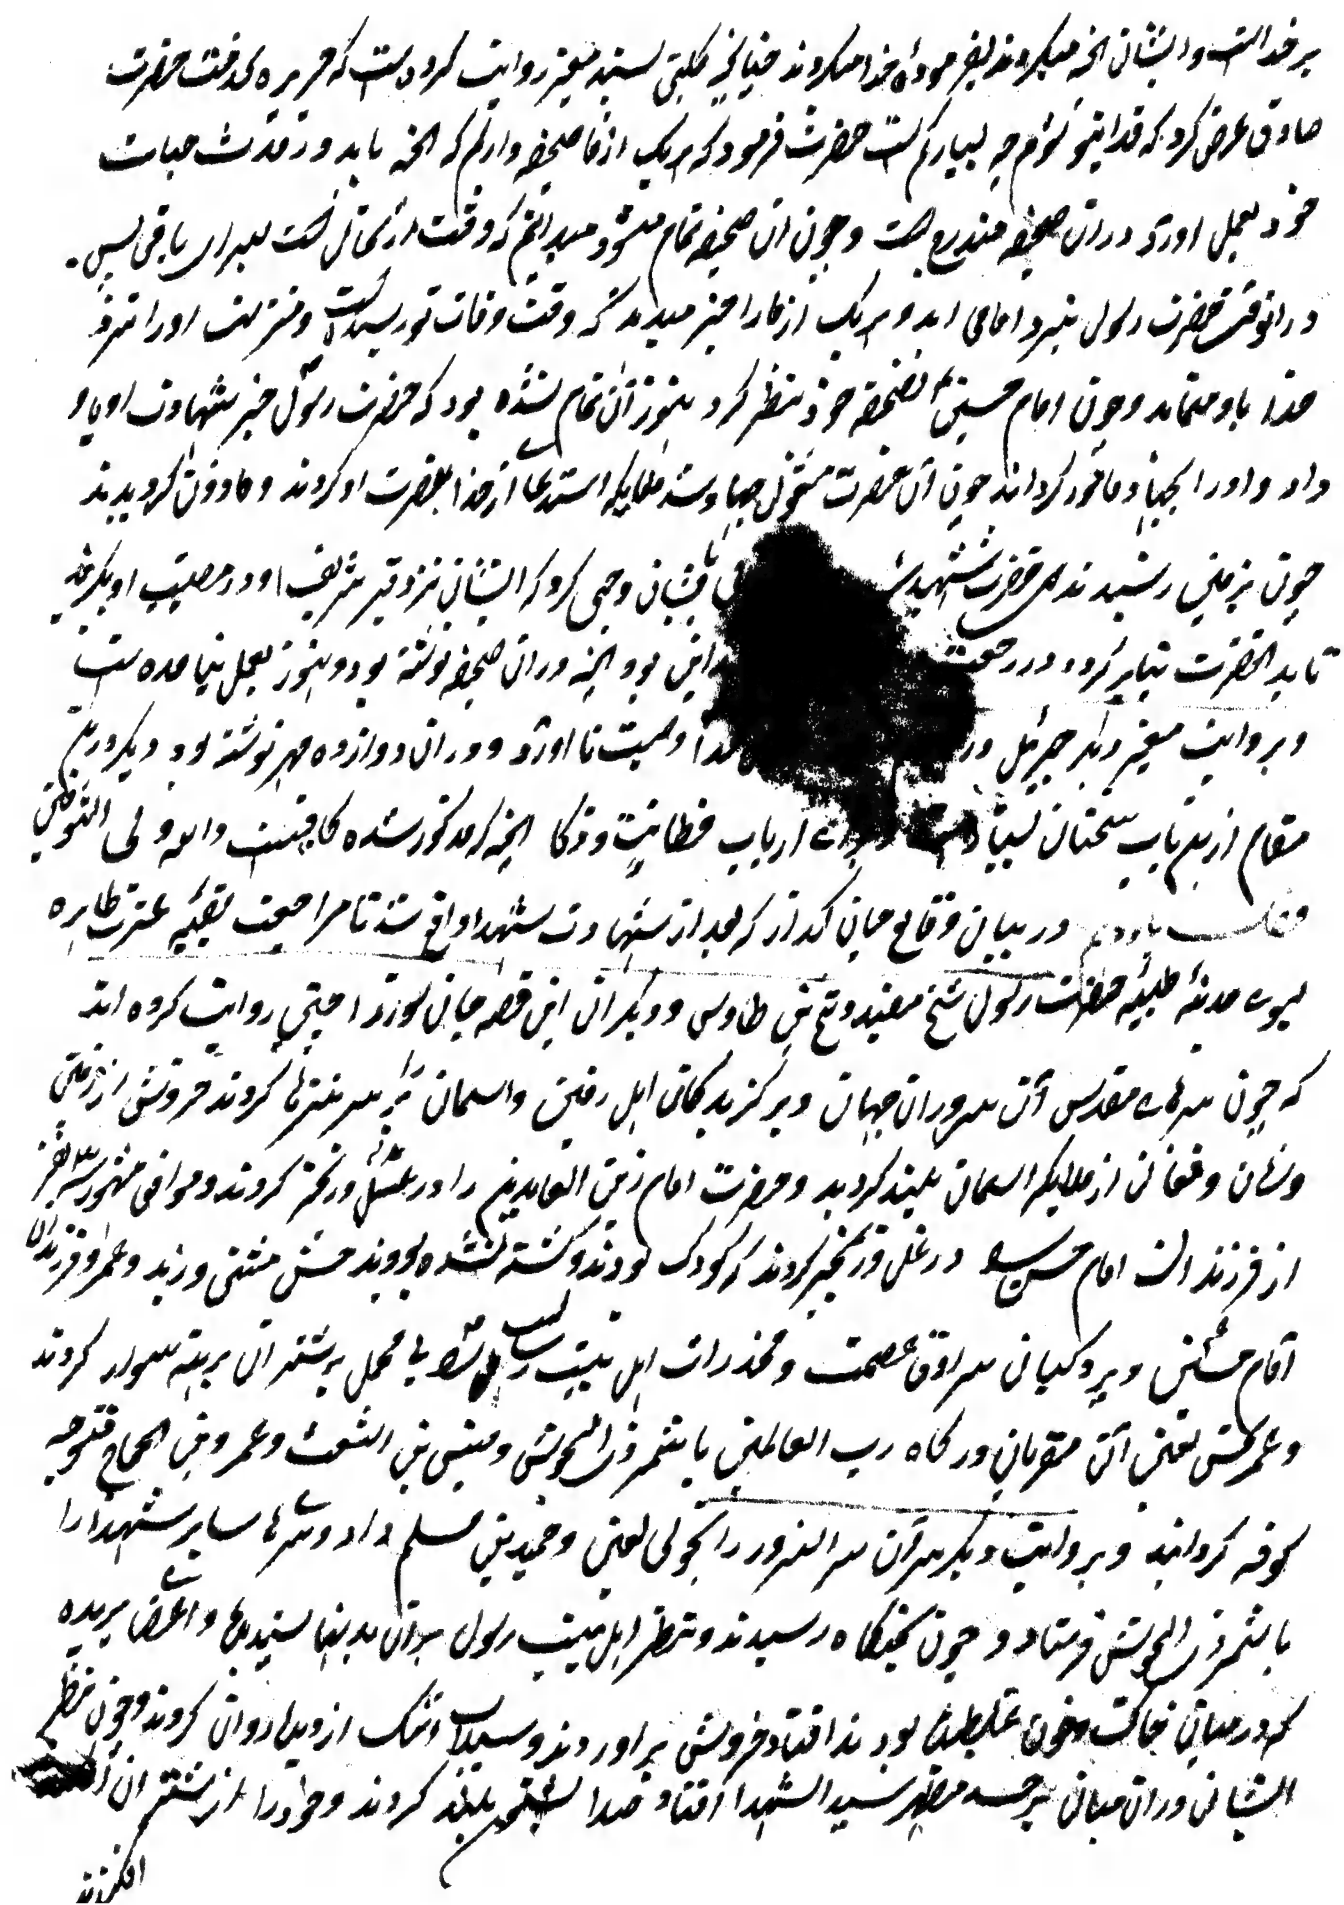 بر خداست و ایشان آنچه میکردند بفرموده خدا میکردند چنانچه کلینی بسند معتبر روایت کرده است که حریز بخدمت حضرت
صادق عرض کرد که فدایتو شوم چه بسیار کم است حضرت فرمود که هر یک از ما صحیفه دارم که آنچه باید در مدت حیات
خود بعمل آورد در آن صحیفه مندرج است و چون آن صحیفه تمام میشود میدانیم که وقت ارتحال است بسرای باقی پس
در آنوقت حضرت رسول بنزد امامی اید و هر یک از ما را خبر میدهد که وقت وفات تو رسیده است و منزلت او را نزد
خدا باو مینماید و چون امام حسین بصحیفه خود نظر کرد هنوز آن تمام نشده بود که حضرت رسول خبر شهادت او باو
داد و او را بجهاد مامور گردانید چون آن حضرت مشغول جهاد شد ملایکه استدعا از خدا بنصرت او کردند و ماذون گردیدند
چون بزمین رسیدند حضرت شهید بایشان وحی کرد که ایشان نزد قبر شریف او در مصیبت او بگریند
تا بد انحضرت کرده در رجعت این بود آنچه در آن صحیفه نوشته بود و هنوز بعمل نیامده است
و بروایت معتبر دیگر جبرئیل وصیت نامه آورد و در آن دوازده مهر نوشته بود و دیگر درین
مقام ازین باب سخنان بسیار است ارباب فطانت و ذکا آنچه مذکور شده کافیست والله ولی التوفیق
در بیان وقایع جان گداز که بعد از شهادت شهدا واقع شد تا مراجعت بقیه عترت طاهره
بسوی مدینه طیبه حضرت رسول شیخ مفید و شیخ ابن طاوس و دیگران این قصه جان سوز را چنین روایت کرده اند
که چون سرهای مقدس آن سروران جهان و برگزیدگان اهل زمین و آسمان را بر سر نیزها کردند خروش از زمین
و زمان و فغان از ملایکه آسمان بلند گردید و حضرت امام زین العابدین را در غل و زنجیر کردند و موافق مشهور سه نفر
از فرزندان امام حسن در غل و زنجیر کردند که کودک بودند و کشته نشده بودند حسن مثنی و زید و عمر و فرزندان
امام حسین و پردکیان سرادق عصمت و مخدرات اهل بیت رسالت را بی محمل بر شتران برهنه سوار کردند
و عمر نحس لعین آن مقربان درگاه رب العالمین با شمر ذی الجوشن و قیس بن اشعث و عمرو بن الحجاج متوجه
کوفه گردانید و بروایت دیگر سر آن سر السرور را بخولی لعین و حمید بن مسلم داد و سرهای سایر شهدا را
با شمر ذی الجوشن فرستاد و چون بجنگگاه رسیدند و نظر اهل بیت رسول بر آن بدنها و اعضای بریده
که در میان خاک و خون غلطیده بودند افتاد خروش بر آوردند و سیلاب اشک از دیدها روان کردند و چون نظر
ایشان در آن میان بر جسد مطهر سید الشهدا افتاد صدا بشیون بلند کردند و خود را از شتر ان
افکندند